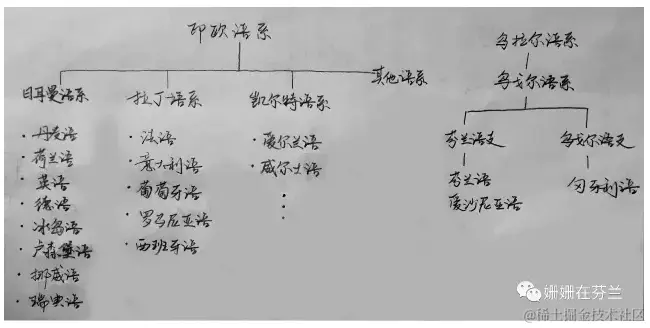 印欧语系
乌拉尔语系
其他语系
乌戈尔语系
日耳曼语系
拉丁语系
凯尔特语系
·丹麦语
·荷兰语
·英语
·德语
·冰岛语
·卢森堡语
·挪威语
·瑞典语
·法语
·意大利语
·葡萄牙语
·罗马尼亚语
·西班牙语
·爱尔兰语
·威尔士语
芬兰语支
芬兰语
爱沙尼亚语
乌戈尔语支
匈牙利语
姗姗在芬兰
@稀土掘金技术社区